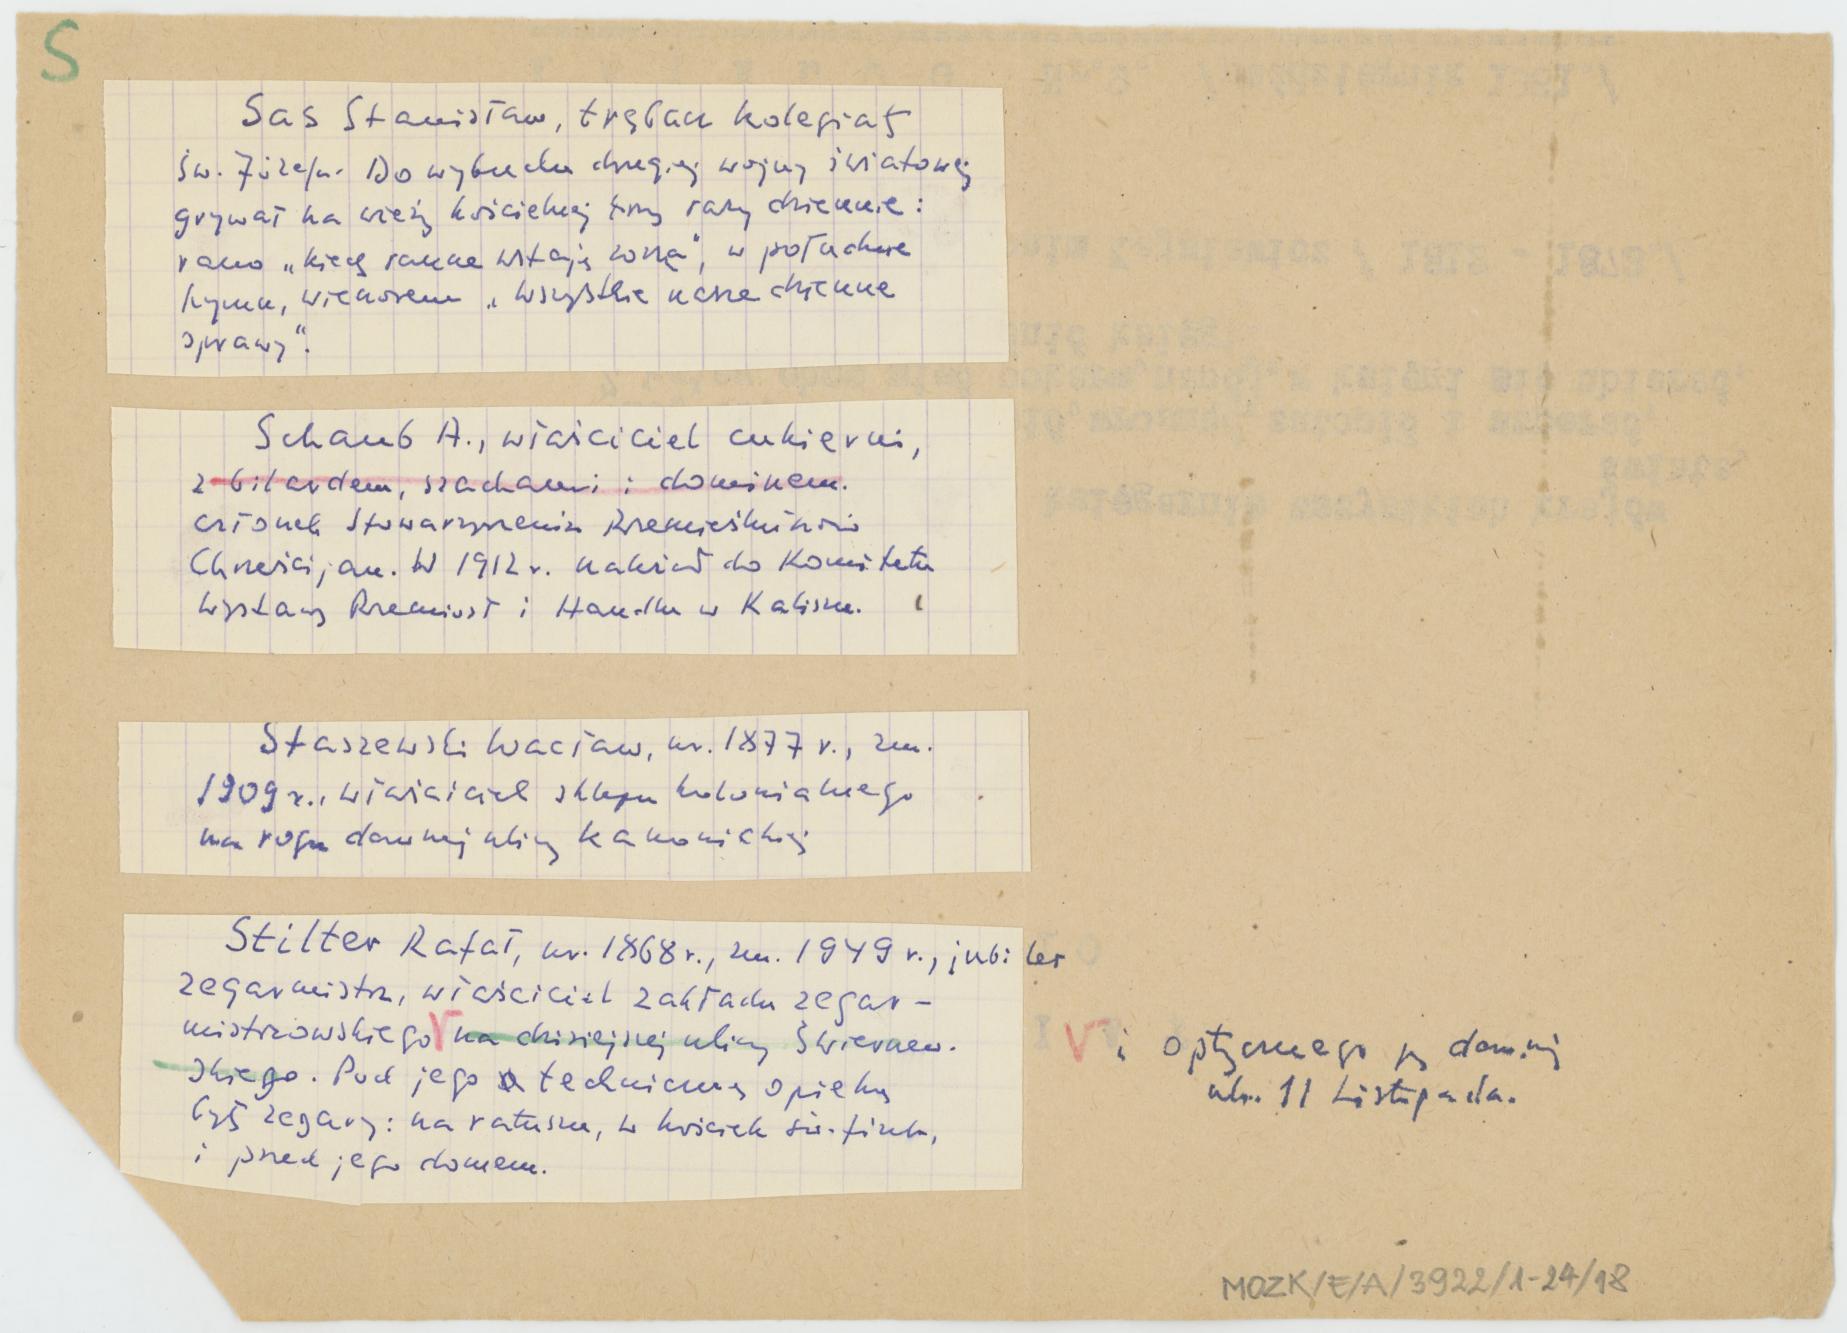 S
Sas Stanisław, trębacz kolegiaty
św. Józefa. Do wybuchu drugiej wojny światowej
grywał na wieży kościelnej trzy razy dziennie:
rano „Kiedy ranne wstają zorze", w południe
hymn, wieczorem „Wszystkie nasze dzienne
sprawy".
Schaub A., właściciel cukierni,
z bilardem, szachami i dominem.
członek Stowarzyszenia Rzemieślników
Chrześcijan. W 1912 r. należał do Komitetu
Wystawy Rzemiosł i Handlu w Kaliszu.
Staszewski Wacław, ur. 1877 r., zm.
1909 r., właściciel sklepu kolonialnego
na rogu dawnej ulicy Kanonickiej
Stilter Rafał, ur. 1868 r., zm. 1949 r., jubiler
zegarmistrz, właściciel zakładu zegar-
mistrzowskiego na dzisiejszej ulicy Świerczew.
skiego. Pod jego techniczną opieką
były zegary: na ratuszu, w kościele
i przed jego domem.
i optycznego przy dawnej
ul. 11 Listopada.
MOZK/E/A/3922/1-24/18